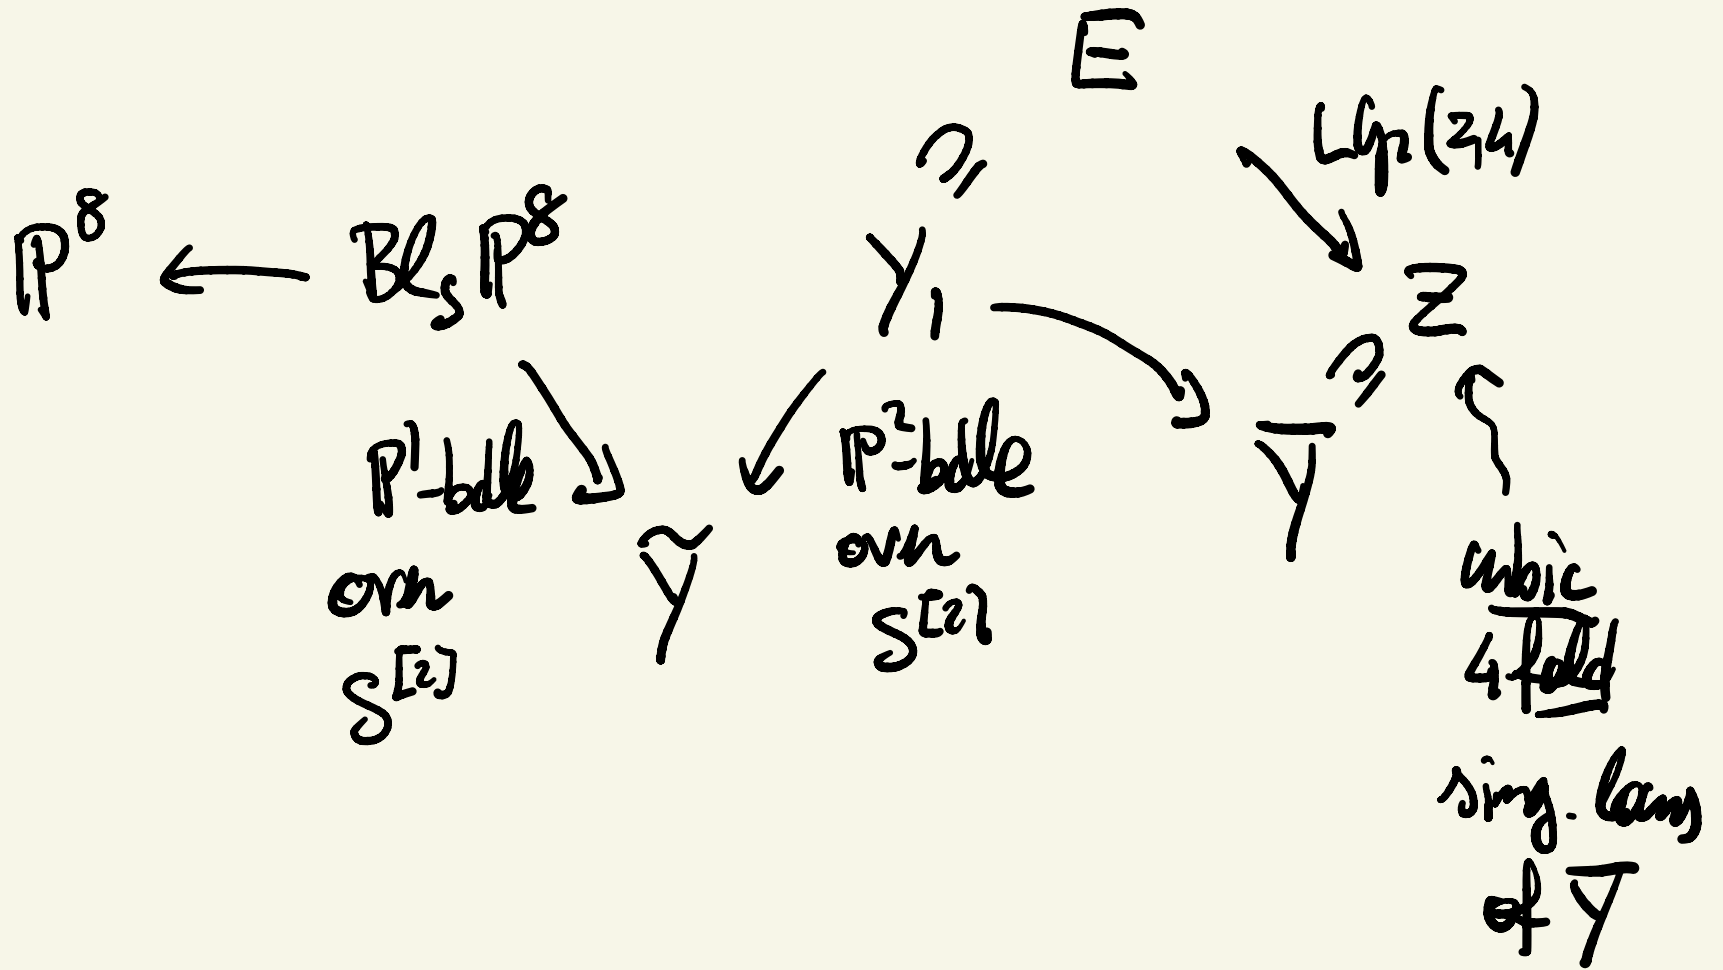 E
LGr(2,4)
ℙ⁸ ← Bl_S ℙ⁸
Y₁
Z
ℙ¹-bdle
over
S^[2]
Ỹ
ℙ²-bdle
over
S^[2]
Y̅
cubic
4fold
sing. locus
of Y̅